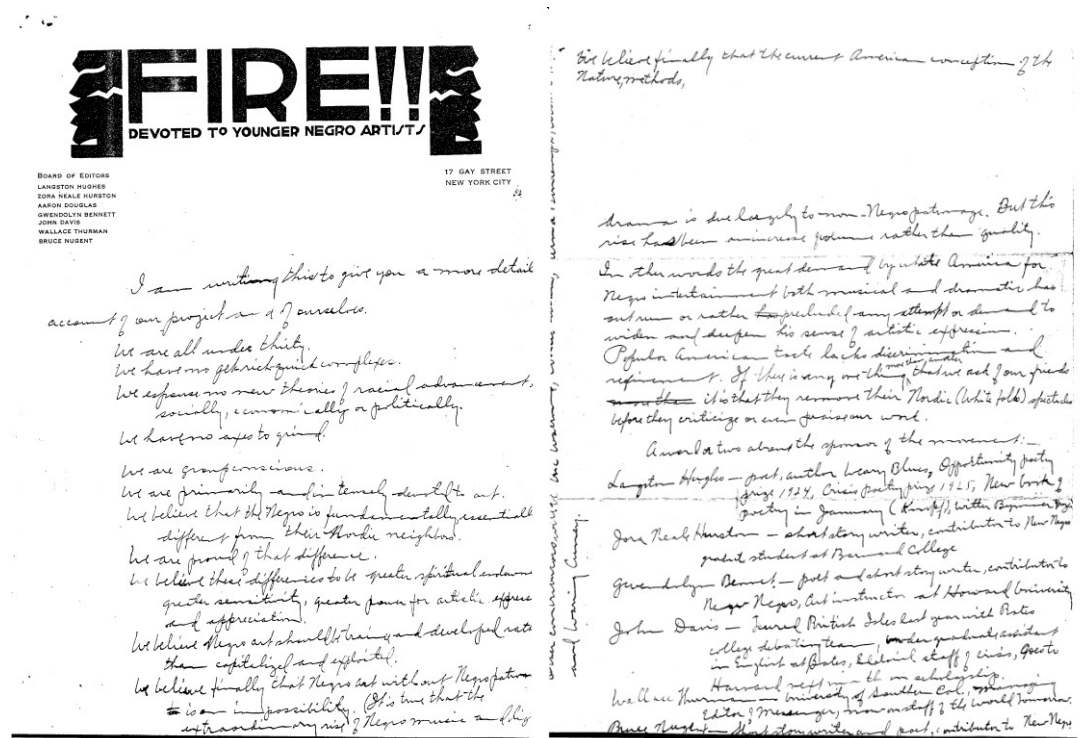 FIRE!!
DEVOTED TO YOUNGER NEGRO ARTISTS
BOARD OF EDITORS
LANGSTON HUGHES
ZORA NEALE HURSTON
AARON DOUGLAS
GWENDOLYN BENNETT
JOHN DAVIS
WALLACE THURMAN
BRUCE NUGENT
17 GAY STREET
NEW YORK CITY
I am writing this to give you a more detail
account of our project and of ourselves.
We are all under thirty.
We have no get-rich-quick complexes.
We espouse no new theories of racial advancement,
socially, economically or politically.
We have no axes to grind.
We are group conscious.
We are primarily and intensely devoted to art.
We believe that the Negro is fundamentally essentiall
different from their Nordic neighbors.
We are proud of that difference.
We believe these differences to be greater spiritual endowm
greater sensitivity, greater power for artistic express
and appreciation.
We believe Negro art should be trained and developed rath
than capitalized and exploited.
We believe finally that Negro art without Negro patron
is an impossibility. (It is true that the
extraordinary rise of Negro music and
We believe finally that the current American conception of the
Nature, methods,
drama is due largely to non-Negro patronage. But this
rise has been in increase volume rather than quality.
In other words the great demand by white America for
Negro entertainment both musical and dramatic has
or rather precluded any attempt or demand to
widen and deepen his sense of artistic expression.
Popular American taste lacks discrimination and
refinement. If there is any one thing more than another that we ask of our friends
it is that they remove their Nordic (white folks) spectacles
before they criticize or even praise our work.
A word or two about the sponsor of the movement:—
Langston Hughes — poet, author Weary Blues, Opportunity poetry
prize 1924, Crisis poetry prize 1925, New book of
poetry in January (Knopf),
Zora Neal Hurston — short story writer, contributor to New Negro
graduate student at Barnard College
Gwendolyn Bennet — poet and short story writer, contributor to
New Negro, Art instructor at Howard University
John Davis — Toured British Isles last year with Bates
college debating team, undergraduate assistant
in English at Bates, Editorial staff of Crisis, Goes to
Harvard next month on scholarship.
Wallace Thurman — University of Southern Cal, Managing
Editor of Messenger, now on staff of the World Tomorrow.
Bruce Nugent — Short story writer and poet, contributor to New Negro
and loving Amy.